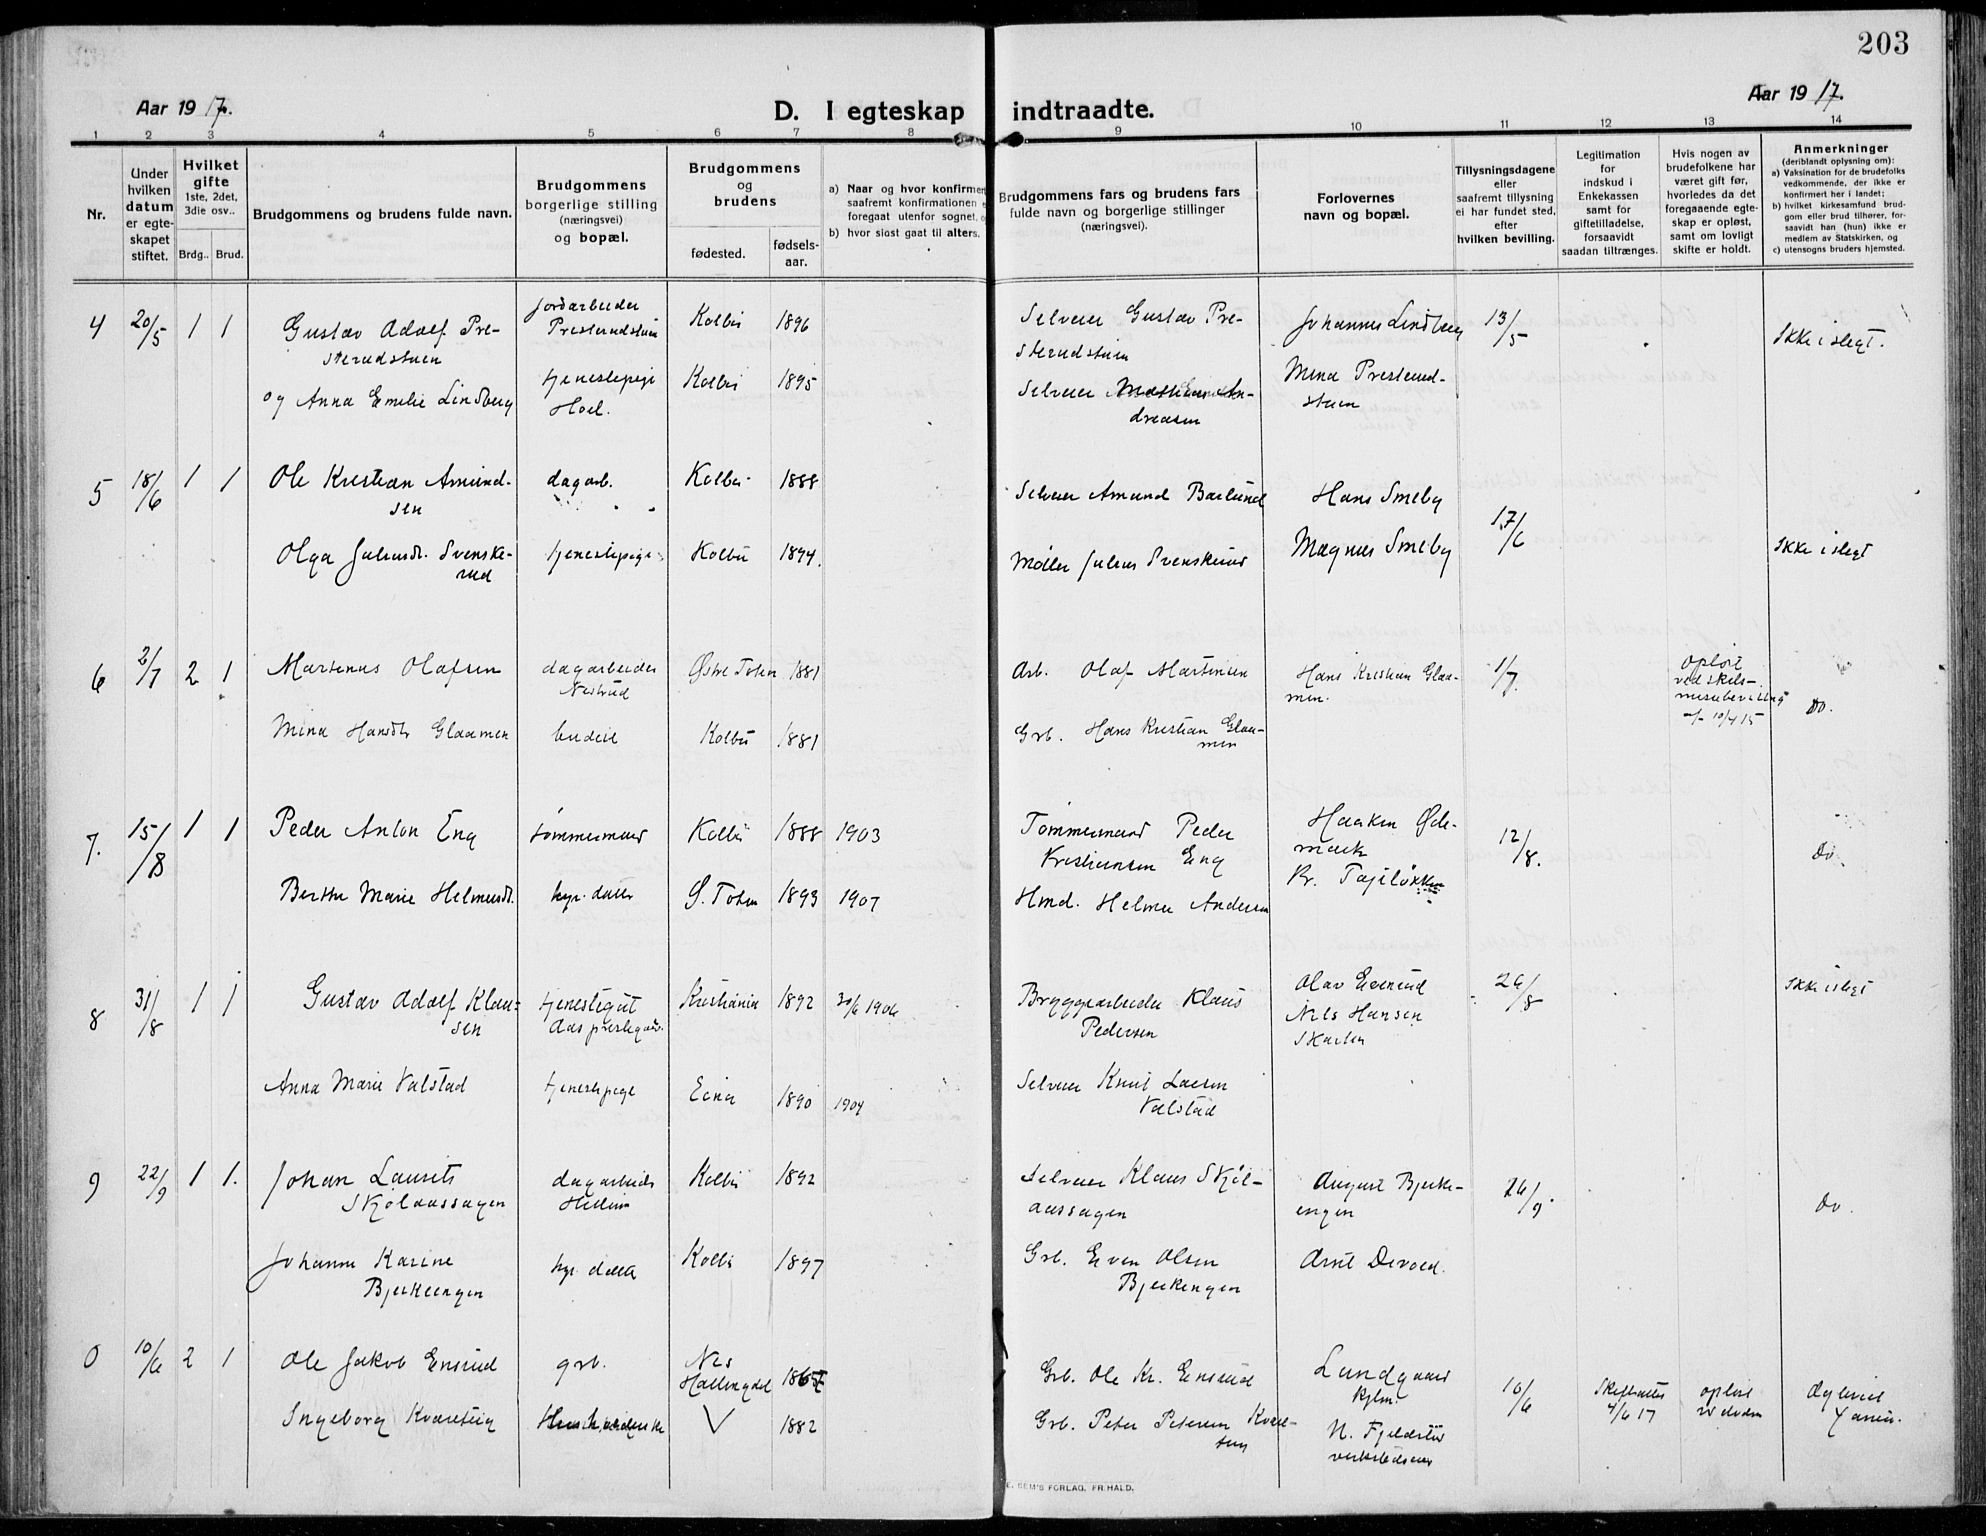 203
Aar 1917.
D. I egteskap indtraadte.
Aar 1917.
1 2 3 4 5 6 7 8 9 10 11 12 13 14
Nr.
Under hvilken datum er egteskapet stiftet.
Hvilket gifte 1ste, 2det, 3die osv..
Brdg.. Brud.
Brudgommens og brudens fulde navn.
Brudgommens borgerlige stilling (næringsvei) og bopæl.
Brudgommens og brudens
fødested. fødselsaar.
a) Naar og hvor konfirmer
saafremt konfirmationen e
foregaat utenfor sognet, o
b) hvor sidst gaat til alters.
Brudgommens fars og brudens fars
fulde navn og borgerlige stillinger
(næringsvei).
Forlovernes
navn og bopæl.
Tillysningsdagene
eller
saafremt tillysning
ei har fundet sted,
efter
hvilken bevilling.
Legitimation
for
indskud i
Enkekassen
samt for
giftetilladelse,
forsaavidt
saadan tiltrænges.
Hvis nogen av
brudefolkene har
været gift før,
hvorledes da det
foregaaende egte-
skap er opløst,
samt om lovligt
skifte er holdt.
Anmerkninger
(deriblandt oplysning om):
a) Vaksination for de brudefolks
vedkommende, der ikke er
konfirmert her i landet;
b) hvilket kirkesamfund brud-
gom eller brud tilhører, for-
saavidt han (hun) ikke er
medlem av Statskirken, og
c) utensogns bruders hjemsted.
4 20/5 1 1 Gustav Adolf Pre-
sterudstuen
Jordarbeider
Presterudstuen
Kolbu 1896
Selveier Gustav Pre-
sterudstuen
Johannes Lindberg
13/5
Ikke i slegt.
og Anna Emelie Lindberg
tjenestepige
Hoel.
Kolbu 1895
Selveier An-
dreasen
Mina Presterud-
stuen
5 18/6 1 1 Ole Kristian Amund-
sen
dagarb.
Kolbu 1888
Selveier Amund Barlund
Hans Smeby
17/6
Olga Juliusdt. Svenske-
rud
tjenestepige
Kolbu 1894.
Møller Julius Svenskerud
Magnus Smeby
Ikke i slegt
6 2/7 2 1 Martinus Olafsen
dagarbeider
Nesrud
Østre Toten 1881
Arb. Olaf Martinsen
Hans Kristian Glaa-
men.
1/7.
opløst
ved skils-
missebevilling
af 10/4 15
Do.
Mina Hansdtr Glaamen
budeie
Kolbu 1881
Grb. Hans Kristian Glaa-
men
7. 15/8 1 1 Peder Anton Eng
tømmermand
Kolbu 1888 1903
Tømmermand Peder
Kristiansen Eng
Haakon Øde-
mark
12/8.
Do.
Berthe Marie Helmersdt.
hjv. datter
Ø. Toten 1893 1907
Hmd. Helmer Andersen
Kr. Tajeløkken
8 31/8 1 1 Gustav Adolf Klau-
sen
tjenestegut
Aas prestegaard.
Kristiania 1892 30/6 1906
Bryggearbeider Klaus
Pedersen
Olav Evenrud
Nils Hansen
Skarten
26/8
Ikke i slegt
Anna Marie Valstad
tjenestepige
Eina 1890 1904
Selveier Knut Larsen
Valstad
9 22/9 1 1. Johan Laurits
Skjølaassagen
dagarbeider
Kolbu 1892
Selveier Klaus Skjøl-
aassagen
August Bjerke-
engen
26/9.
Do.
Johanne Karine
Bjerkeengen
hjv. datter
Kolbu 1897
Grb. Even Olsen
Bjerkengen
Arnt Devold.
0 10/6 2 1 Ole Jakob Ensrud
grb.
Nes
Hallingdal
Grb. Ole Kr. Ensrud
Lundgaard
kjlm.
10/6
Skifteattest
4/6 17
opløst
v døden
Ingeborg Kværetuig
V 1882
Grb. Peter Petersen
N. Fjeldstø
E. SEM'S FORLAG, FR.HALD.